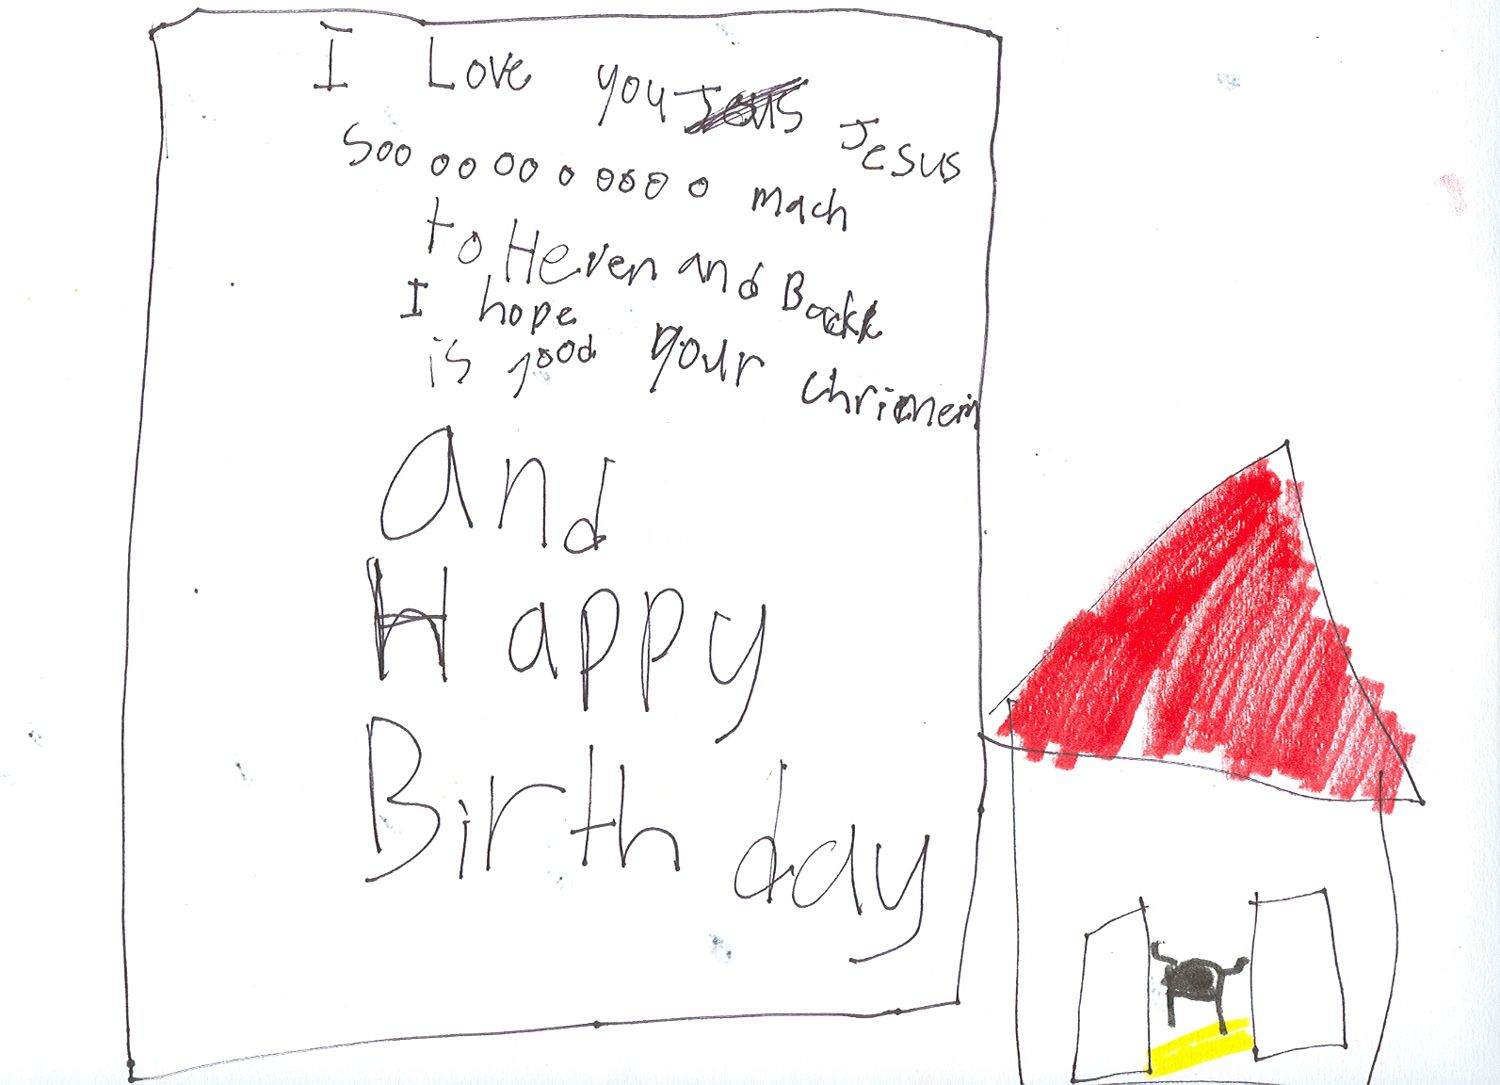 I Love you Jesus
Soooooooooooo mach
to Heven and Back
I hope
is good your
and
Happy
Birthday